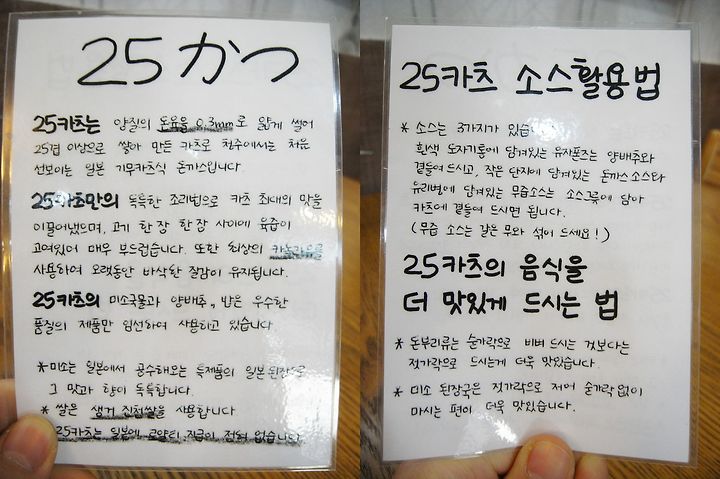 25かつ
25카츠는 양질의 돈육을 0.3mm로 얇게 썰어
25겹 이상으로 쌓아 만든 카츠로 청주에서는 처음
선보이는 일본 기무카츠식 돈까스입니다.
25카츠만의 독특한 조리법으로 카츠 최대의 맛을
이끌어냈으며, 고기 한장 한장 사이에 육즙이
고여있어 매우 부드럽습니다. 또한 최상의 카놀라유를
사용하여 오랫동안 바삭한 질감이 유지됩니다.
25카츠의 미소국물과 양배추, 밥은 우수한
품질의 제품만 엄선하여 사용하고 있습니다
*미소는 일본에서 공수해오는 특제품의 일본된장으로
그 맛과 향이 독특합니다.
* 쌀은 생거 진천쌀을 사용합니다
25카츠는 일본에 로얄티 지급이 전혀 없습니다
25카츠 소스활용법
* 소스는 3가지가 있습
흰색 도자기통에 담겨있는 유자폰즈는 양배추와
곁들여 드시고, 작은 단지에 담겨있는 돈까스 소스와
유리병에 담겨있는 무즙소스는 소스그릇에 담아
카츠에 곁들여 드시면 됩니다.
(무즙 소스는 갈은 무와 섞어 드세요!)
25카츠의 음식을
더 맛있게 드시는 법
* 돈부리류는 숟가락으로 비벼 드시는 것보다는
젓가락으로 드시는게 더욱 맛있습니다.
* 미소 된장국은 젓가락으로 저어 숟가락 없이
마시는 편이 더욱 맛있습니다.